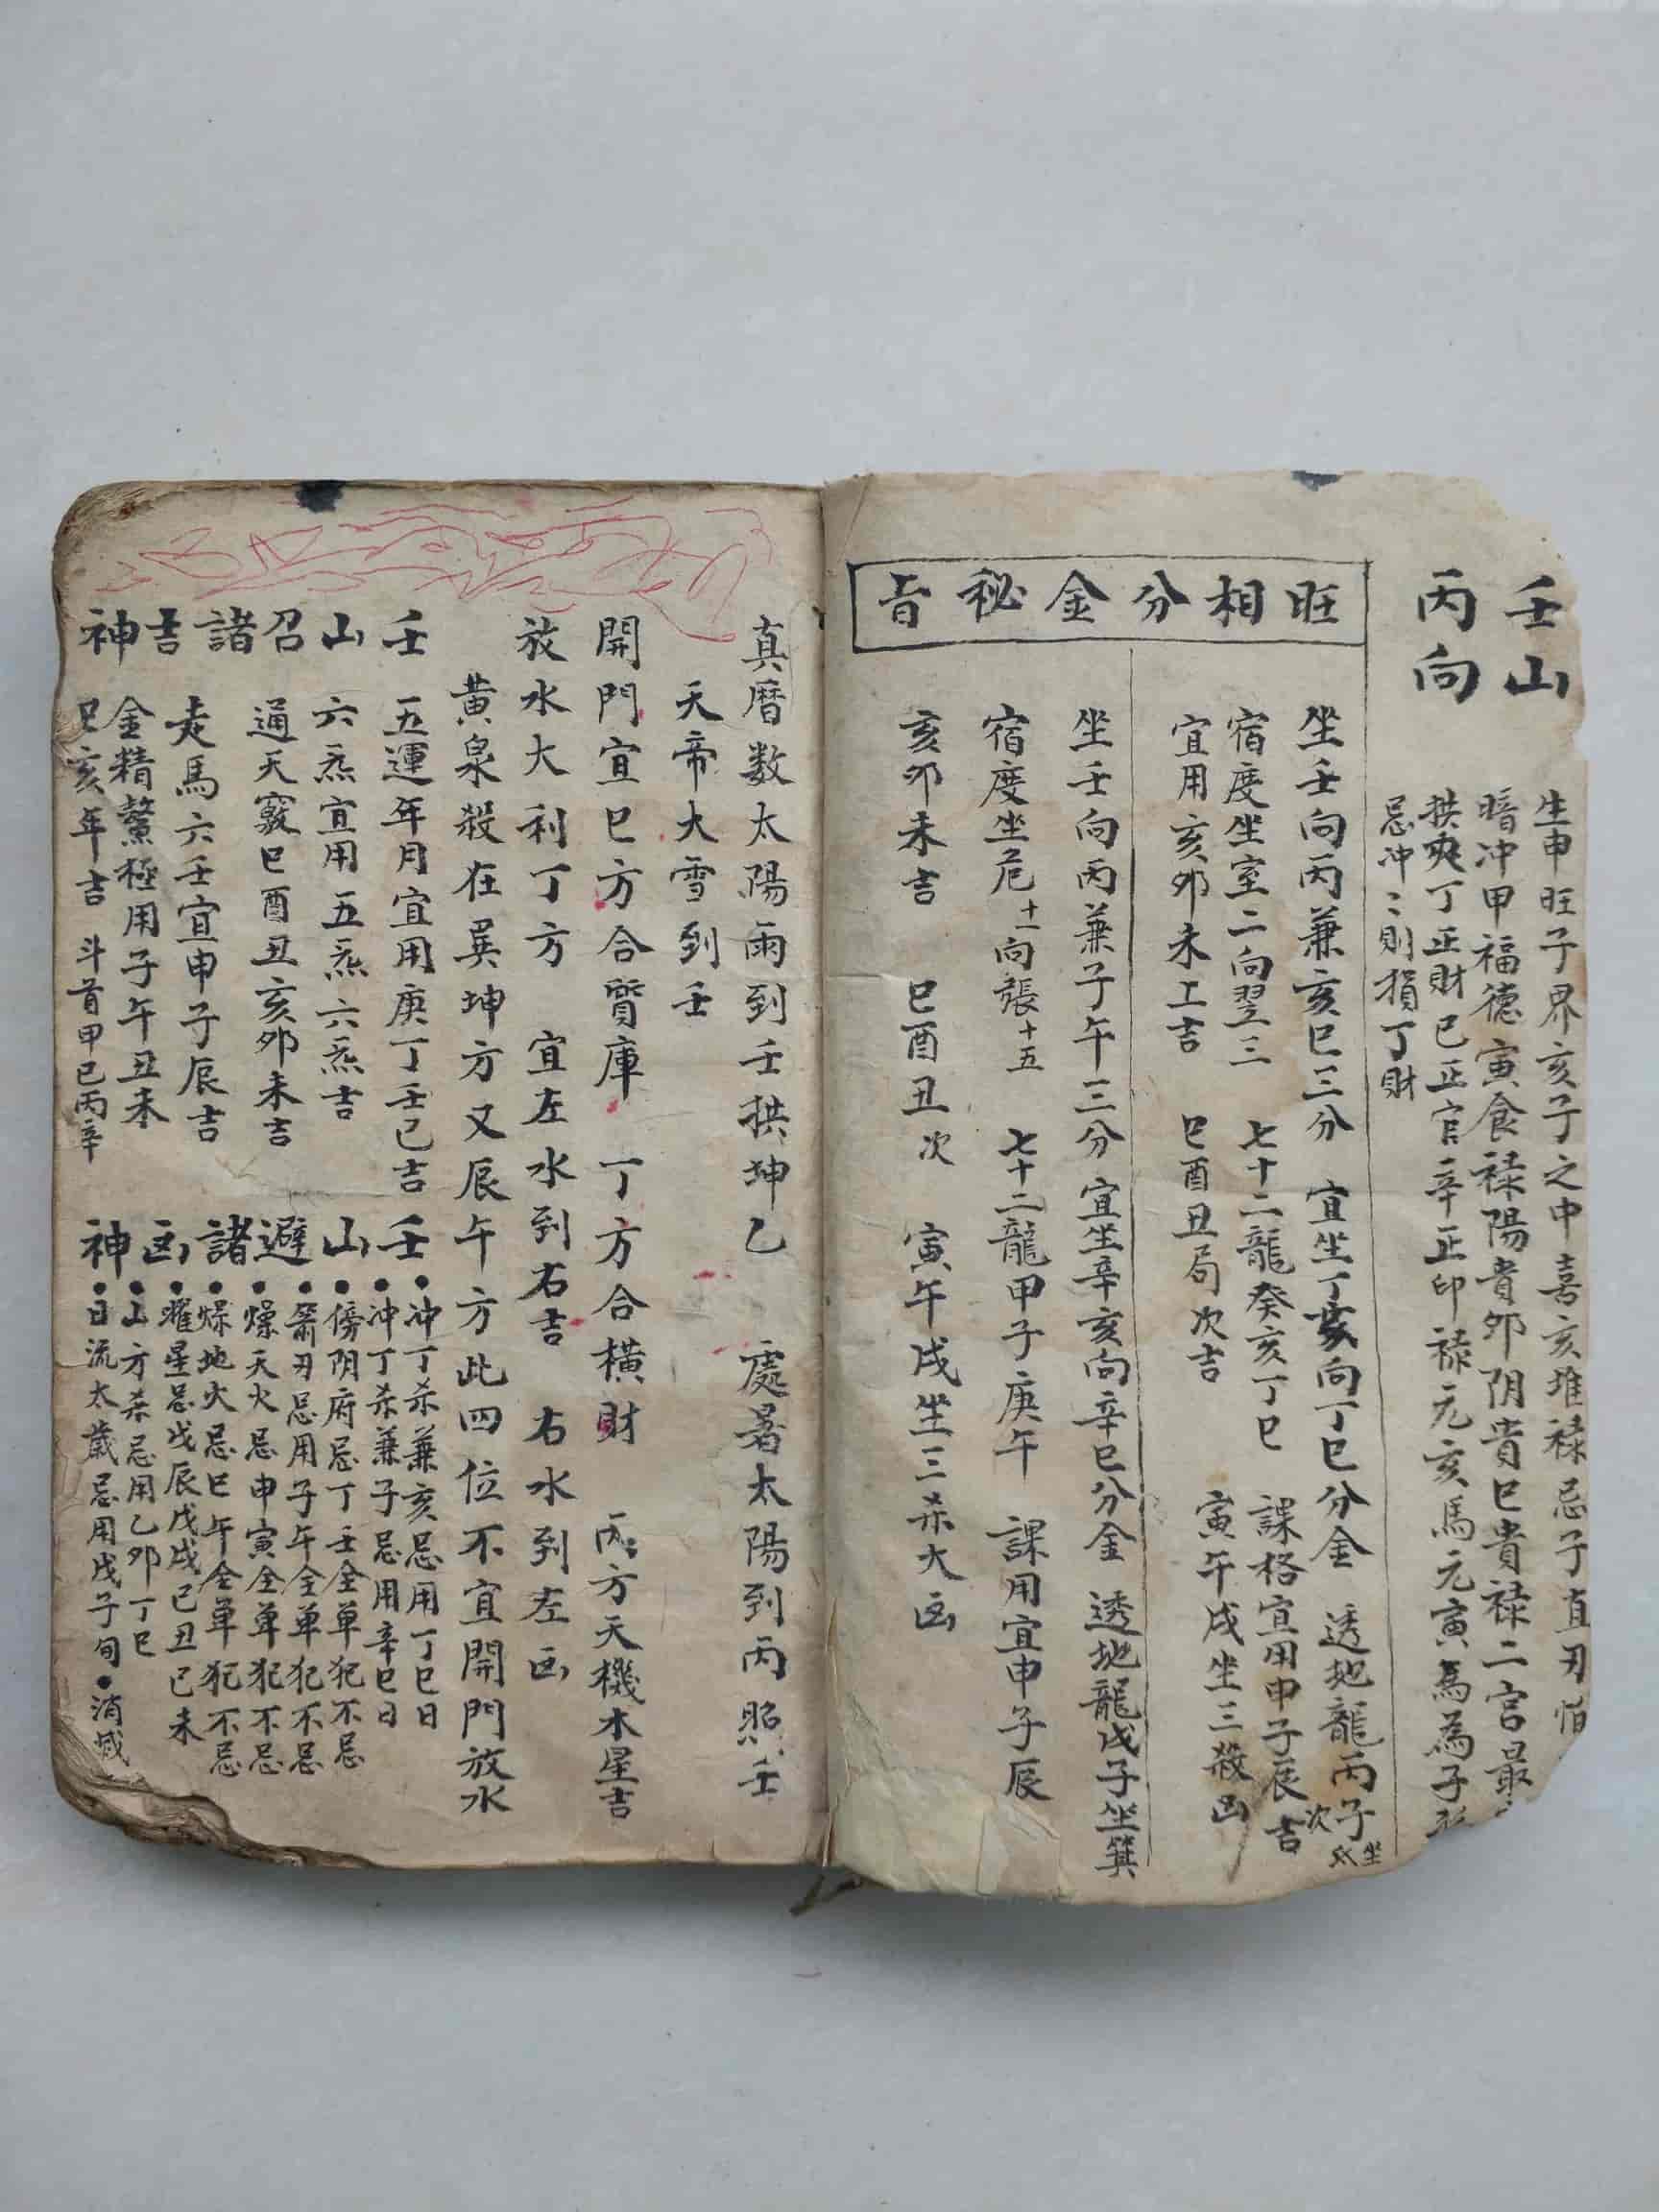 壬山
丙向
生申旺子界亥子之中喜亥堆禄忌子直刃怕
暗冲甲福德寅食禄陽貴卯阴貴巳貴禄二宫最
拱夾丁正財己正官辛正印禄元亥馬元寅馬為子
忌冲〻則損丁財
旺相分金秘旨
坐壬向丙兼亥巳三分 宜坐丁亥向丁巳分金 透地龍丙子坐
宿度坐室二向翌三 七十二龍癸亥丁巳 課格宜用申子辰吉次
宜用亥卯未上吉 巳酉丑局次吉 寅午戌坐三殺凶
坐壬向丙兼子午三分 宜坐辛亥向辛巳分金 透地龍戊子坐箕
宿度坐危十一向張十五 七十二龍甲子庚午 課用宜申子辰
亥卯未吉 巳酉丑次 寅午戌坐三杀大凶
真曆数太陽雨到壬拱坤乙 處暑太陽到丙照壬
天帝大雪到壬
開門宜巳方合質庫 丁方合横財 丙方天機木星吉
放水大利丁方 宜左水到右吉 右水到左凶
黄泉殺在巽坤方又辰午方此四位不宜開門放水
壬山召諸吉神
五運年月宜用庚丁壬己吉
六炁宜用五炁六炁吉
通天竅巳酉丑亥卯未吉
走馬六壬宜申子辰吉
金精鰲極用子午丑未
巳亥年吉 斗首甲己丙辛
壬山避諸凶神
•冲丁杀兼亥忌用丁巳日
•冲丁杀兼子忌用辛巳日
•傍阴府忌丁壬全单犯不忌
•箭刃忌用子午全单犯不忌
•燥天火忌申寅全单犯不忌
•燥地火忌巳午全单犯不忌
•耀星忌戊辰戊戌己丑己未
•山方杀忌用乙卯丁巳
•日流太歲忌用戊子旬•消滅